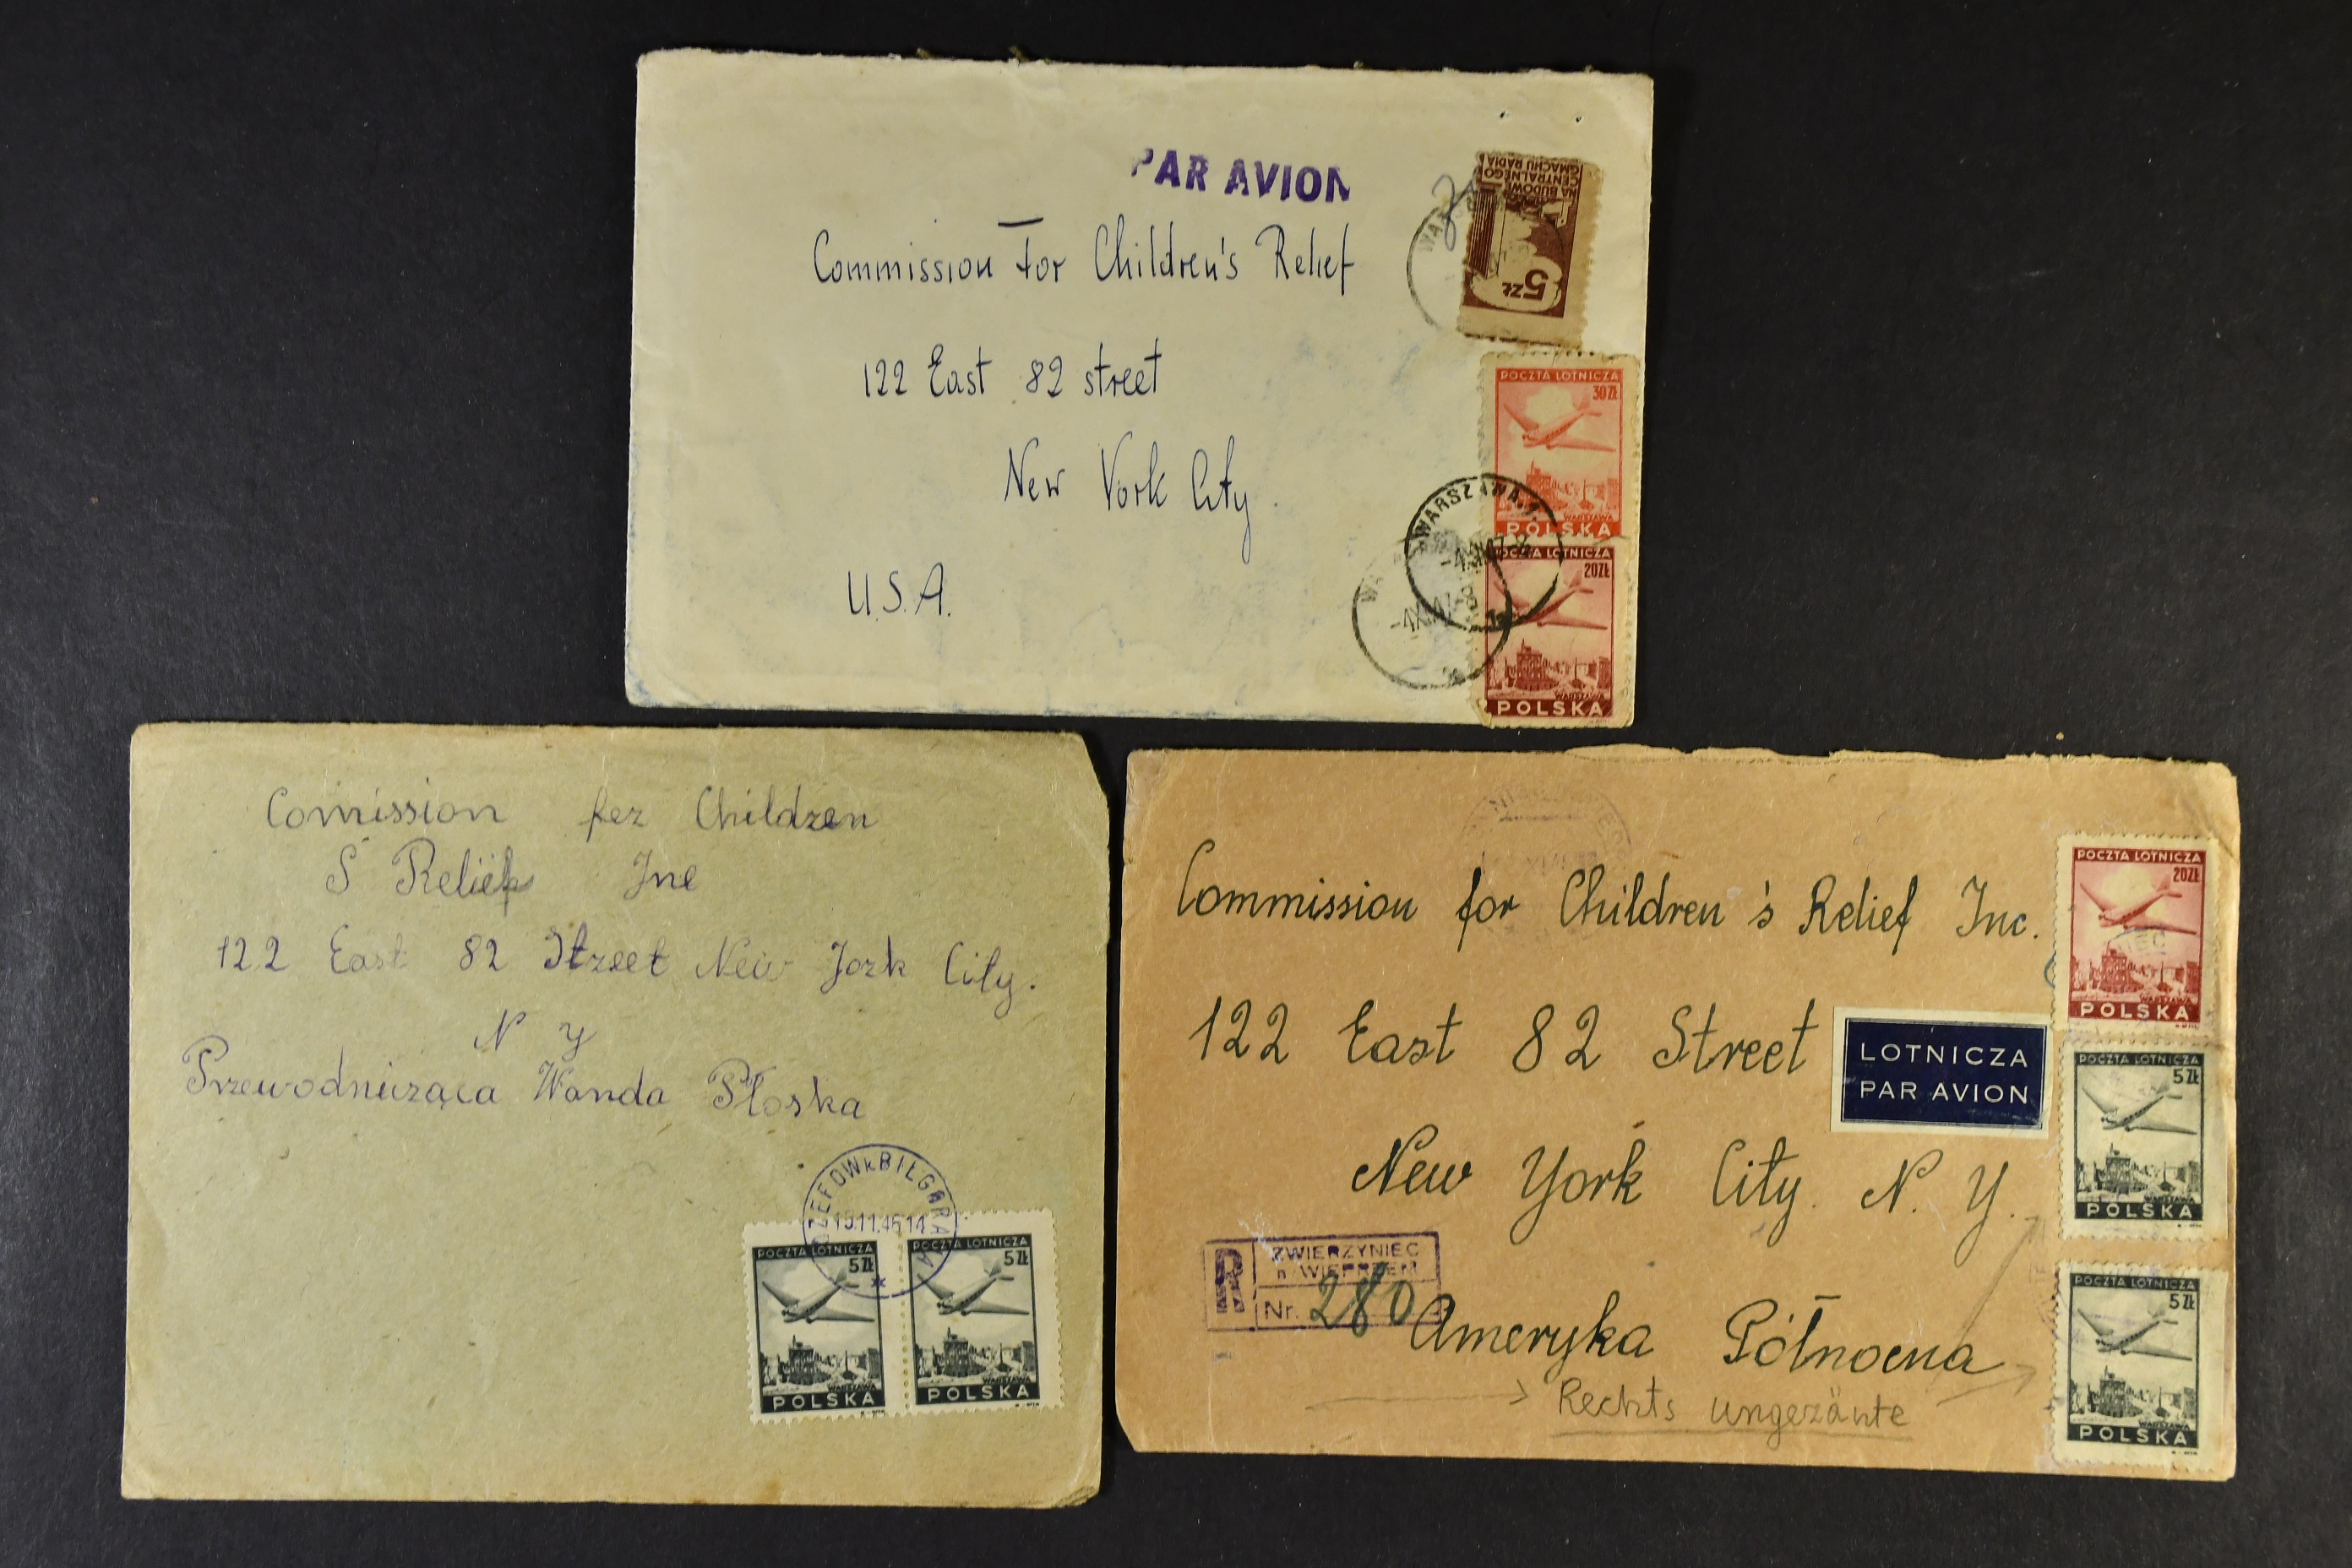 PAR AVION
Commission For Children's Relief
122 East 82 street
New York City
U.S.A.
NA BUDOWĘ
CENTRALNEGO
GMACHU RADIA
5 ZŁ
POCZTA LOTNICZA
30 ZŁ
WARSZAWA
POLSKA
WARSZAWA 1
POCZTA LOTNICZA
20 ZŁ
WARSZAWA
POLSKA
Comission fez Children
S Relief Jne
122 East 82 Street New Jork City.
N Y
Przewodnicząca Wanda Płoska
JÓZEFÓW k. BIŁGORAJA
15.11.46 14
POCZTA LOTNICZA
5 ZŁ
WARSZAWA
POLSKA
POCZTA LOTNICZA
5 ZŁ
WARSZAWA
POLSKA
Commission for Children's Relief Inc.
122 East 82 Street
LOTNICZA
PAR AVION
New York City. N. Y.
R
ZWIERZYNIEC
n. WIEPRZEM
Nr. 280
Ameryka Północna
Rechts ungezänte
POCZTA LOTNICZA
20 ZŁ
WARSZAWA
POLSKA
POCZTA LOTNICZA
5 ZŁ
WARSZAWA
POLSKA
POCZTA LOTNICZA
5 ZŁ
WARSZAWA
POLSKA